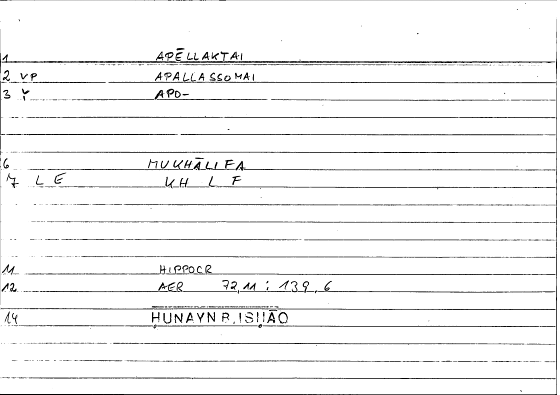 1 APĒLLAKTAI
2 VP APALLASSOMAI
3 Y APO-
6 MUKHĀLIFA
7 L E KH L F
11 HIPPOCR
12 AER 72,11 : 139,6
14 ḤUNAYN B. ISḤĀQ